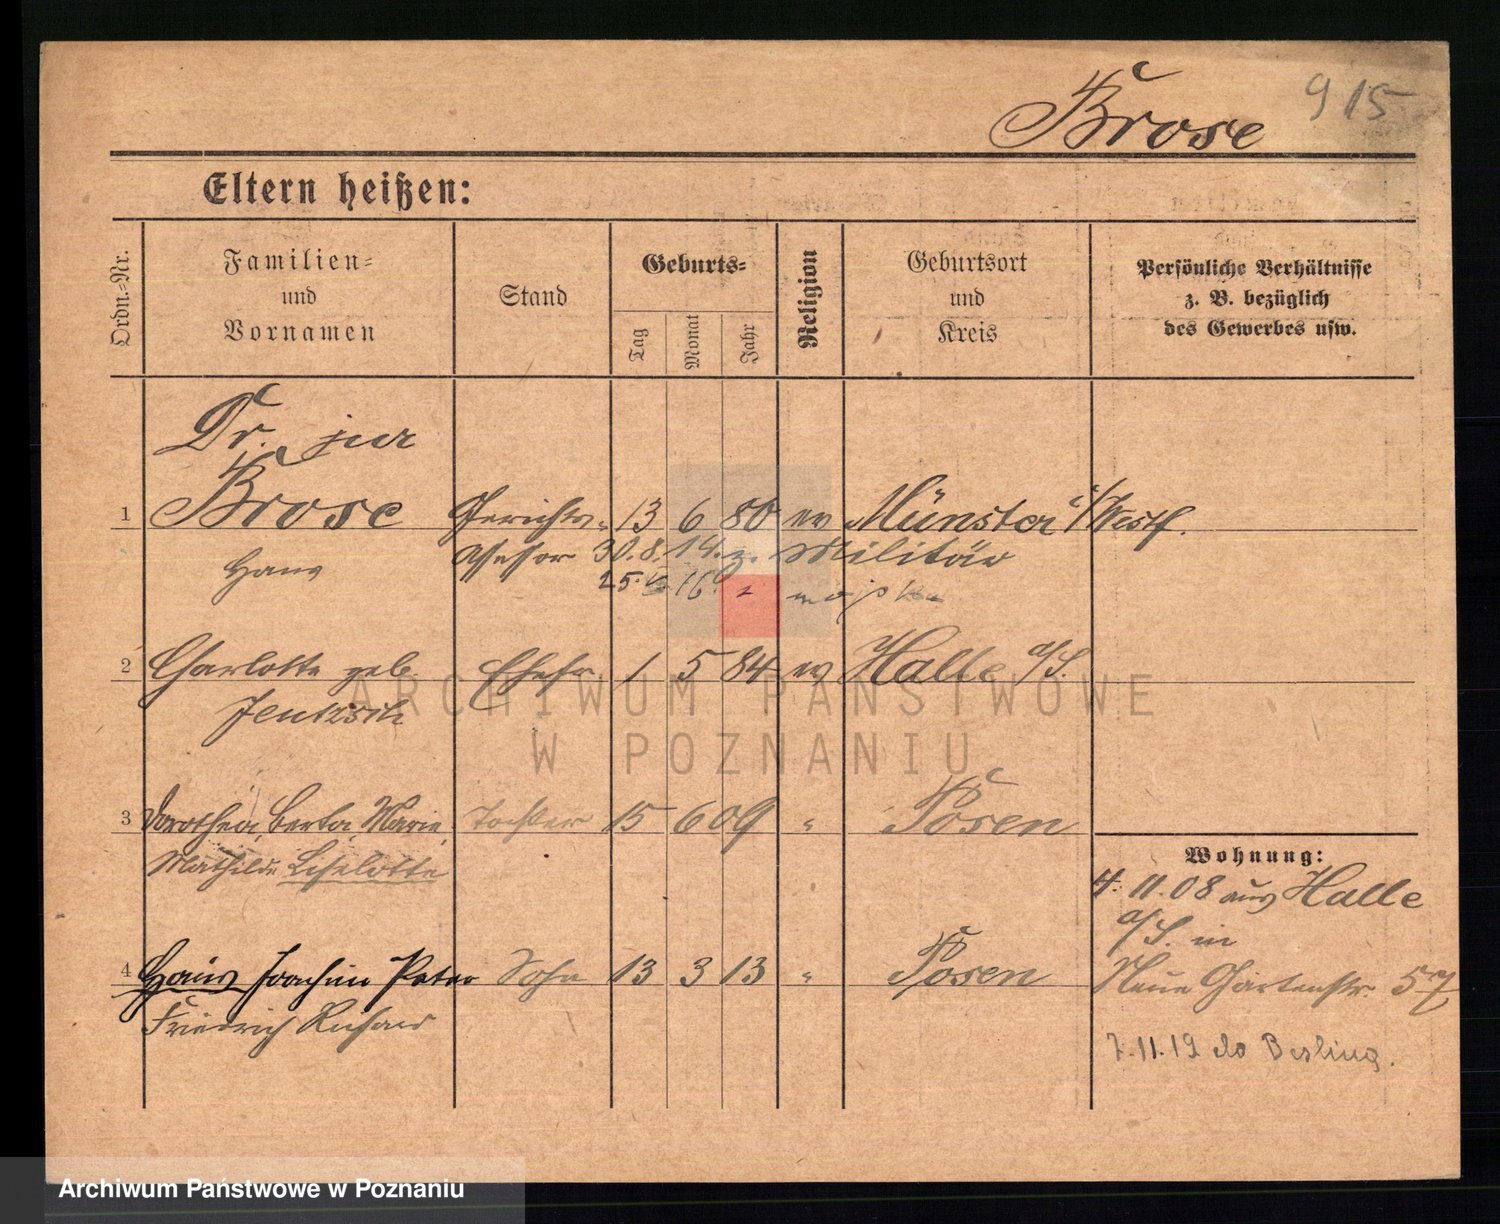 Brose
915
Eltern heißen:
Ordn.-Nr.
Familien-
und
Vornamen
Stand
Geburts-
Tag
Monat
Jahr
Religion
Geburtsort
und
Kreis
Persönliche Verhältnisse
z. B. bezüglich
des Gewerbes usw.
Dr. jur
1 Brose Gerichts- 13 6 80 ev Münster i/Westf.
Hans Assessor 30.8.14. z. Militär
25. 16
2 Charlotte geb. Ehefr 1 5 84 ev Halle a/S.
Jentzsch
3 Dorothea Berta Marie Tochter 15 6 09 " Posen
Mathilde Liselotte
4 Hans Joachim Peter Sohn 13 3 13 " Posen
Friedrich Richard
Wohnung:
4.11.08 aus Halle
a/S. in
Neue Gartenstr. 57
7.11.19 do Berlina.
ARCHIWUM PAŃSTWOWE
W POZNANIU
Archiwum Państwowe w Poznaniu